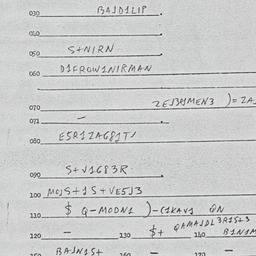 030 BAJD1L1P.
040 .
050 S+N1RN.
060 D1FROW1N1RMAN
070 ZEJ3R1MEN3 )= ZA
071 –
080 E5R1ZAG81TJ
090 S+V1G83R
100 MOJS+1S+VE5J3
110 $ Q-MODN1 )-C1KAV1 QN
120 – 130 $+ QAMAJDL3R1S+3
140 B1N1M
150 BAJN1S+ 160 – 170 –